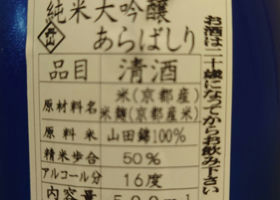 純米大吟醸
あらばしり
お酒は二十歳になってからお飲み下さい
品目 清酒
原材料名 米(京都産)
米麹(京都産米)
原料米 山田錦100%
精米歩合 50%
アルコール分 16度
内容量 500ml